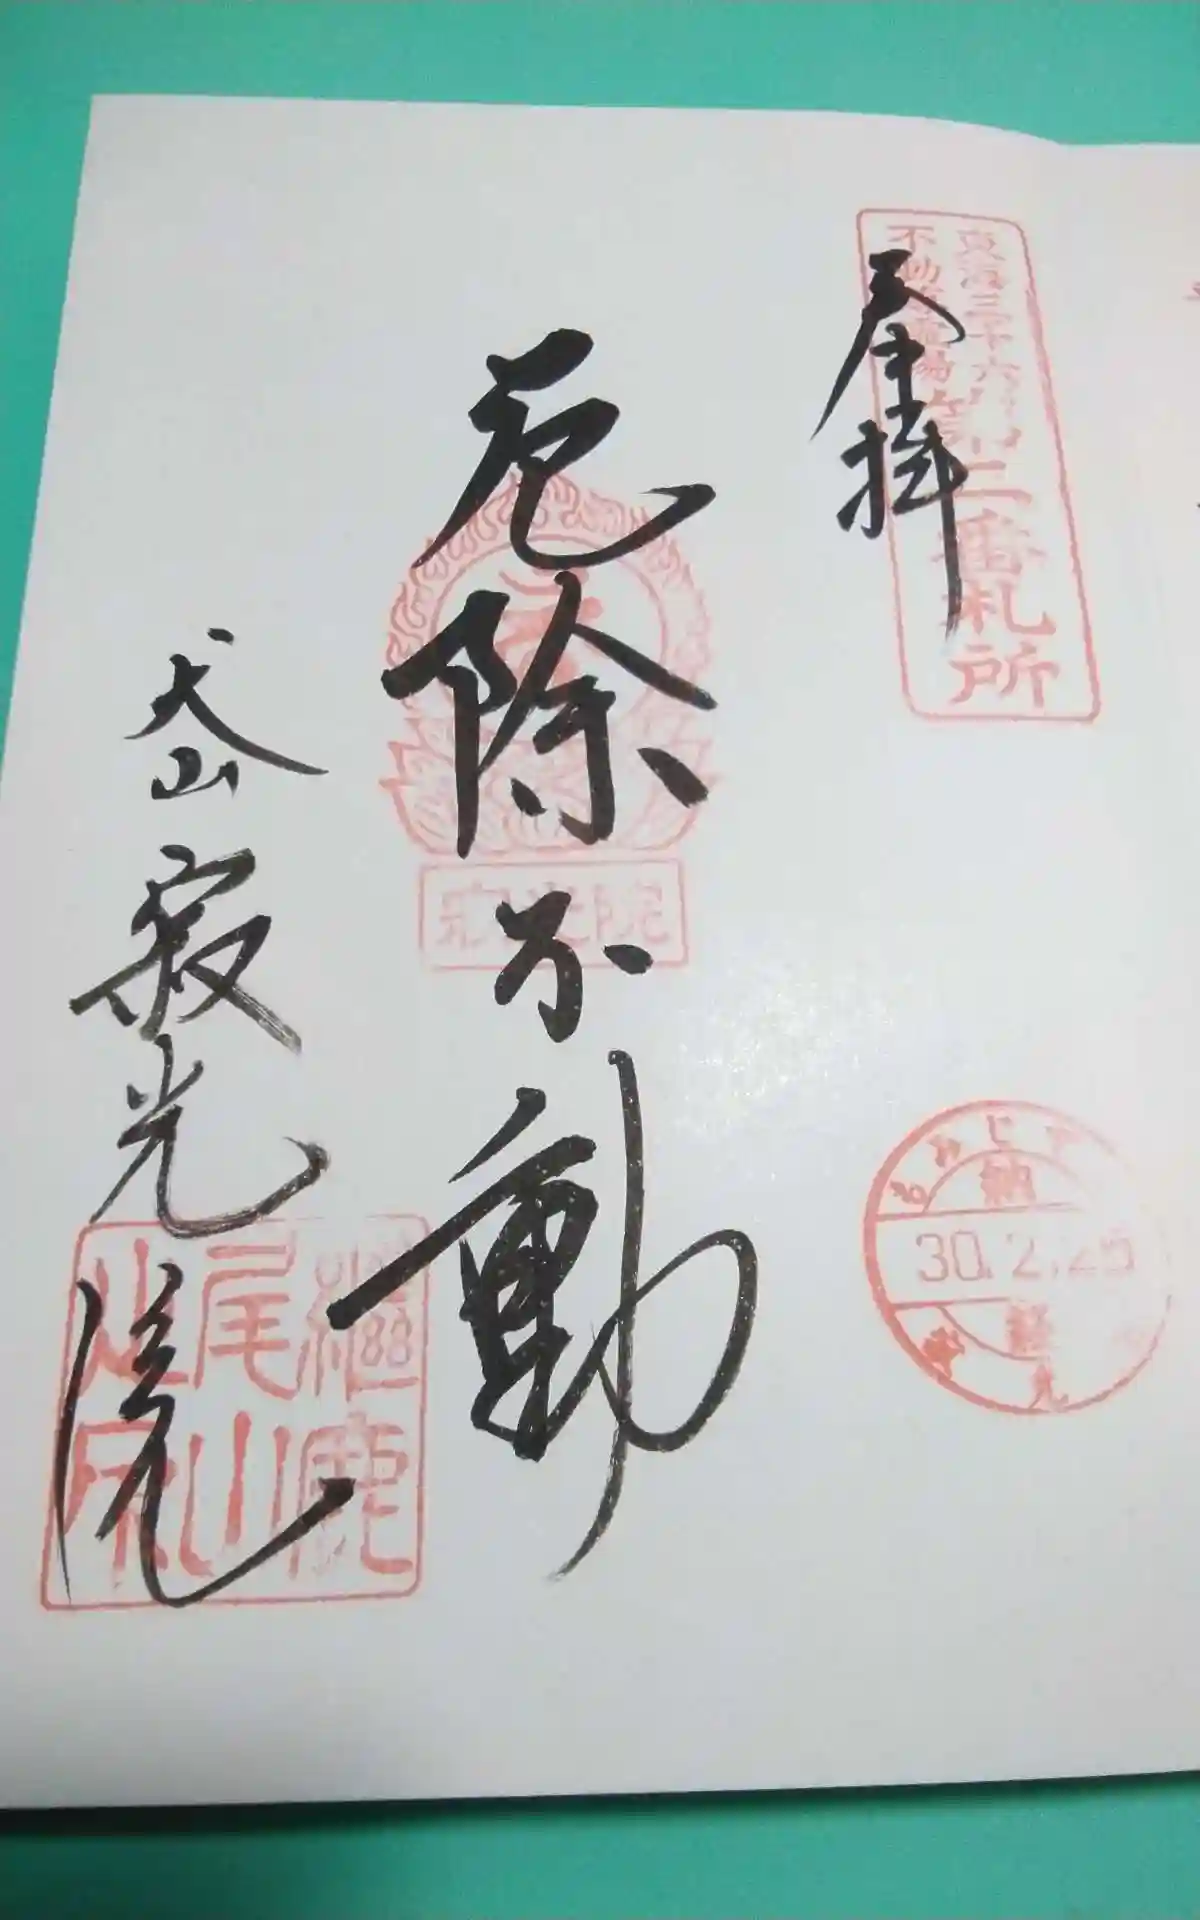 奉拝
東海三十六
不動尊霊場
第二番札所
厄除不動
寂光院
納経
30.2.25
犬山 寂光院
継鹿
尾山